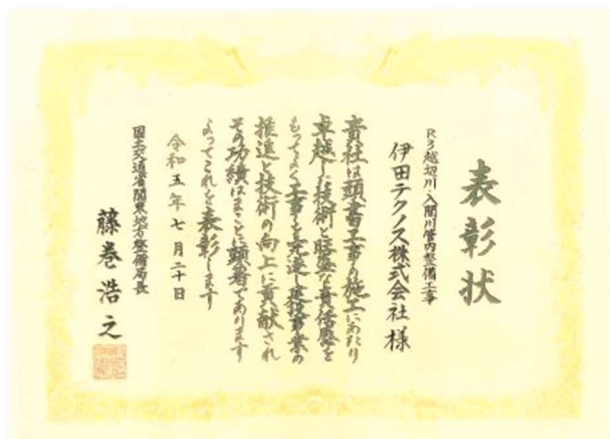 表彰状
R3越辺川・入間川管内整備工事
伊田テクノス株式会社 様
貴社は頭書工事の施工にあたり
卓越した技術と旺盛な責任感を
もってよく工事を完遂し建設事業の
推進と技術の向上に貢献され
その功績はまことに顕著であります
よってこれを表彰します
令和五年七月二十日
国土交通省関東地方整備局長
藤巻浩之